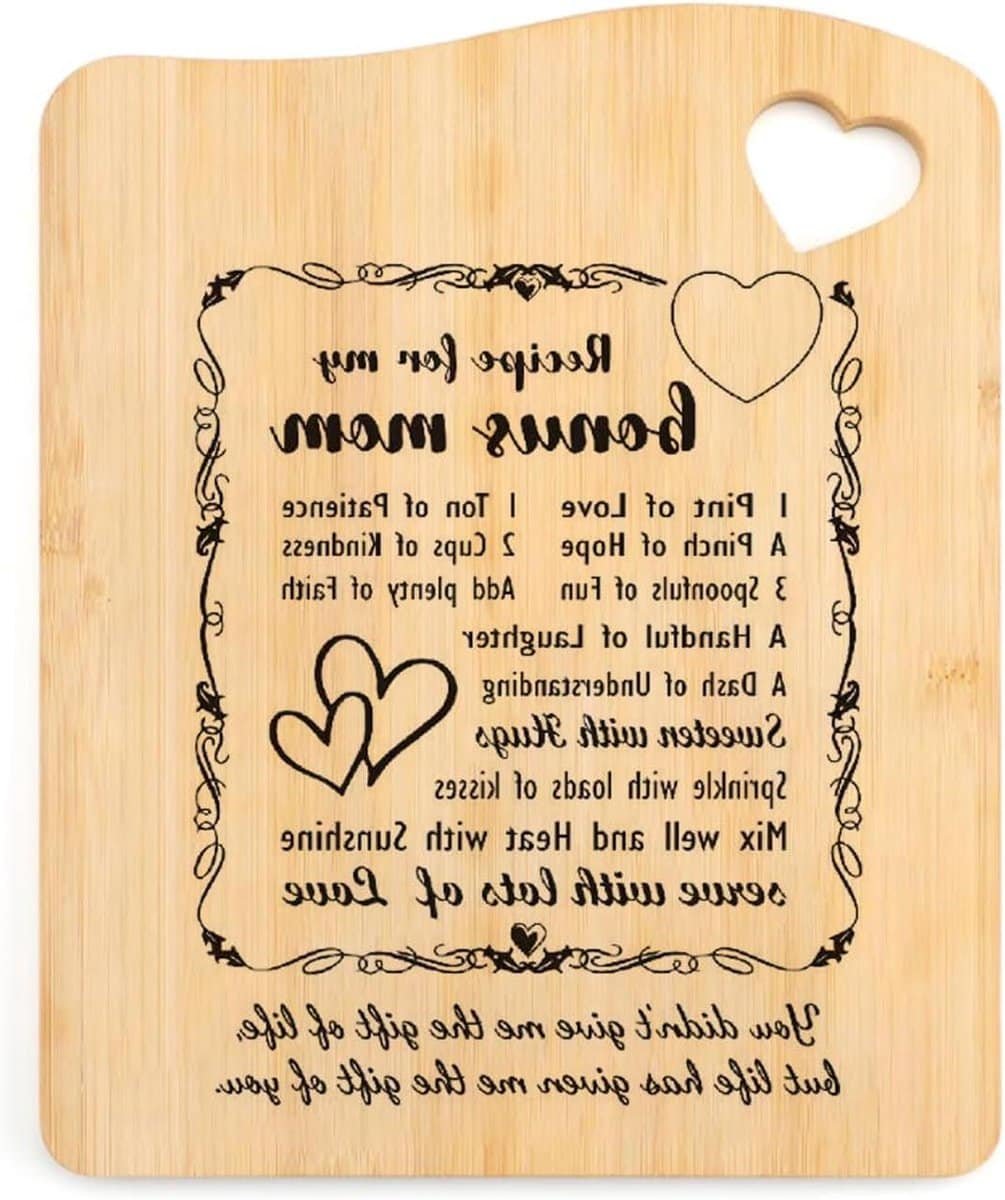 Recipe for my
bonus mom
1 Pint of Love 1 Ton of Patience
A Pinch of Hope 2 Cups of Kindness
3 Spoonfuls of Fun Add plenty of Faith
A Handful of Laughter
A Dash of Understanding
Sweeten with Hugs
Sprinkle with loads of kisses
Mix well and Heat with Sunshine
serve with lots of Love
You didn't give me the gift of life,
but life has given me the gift of you.